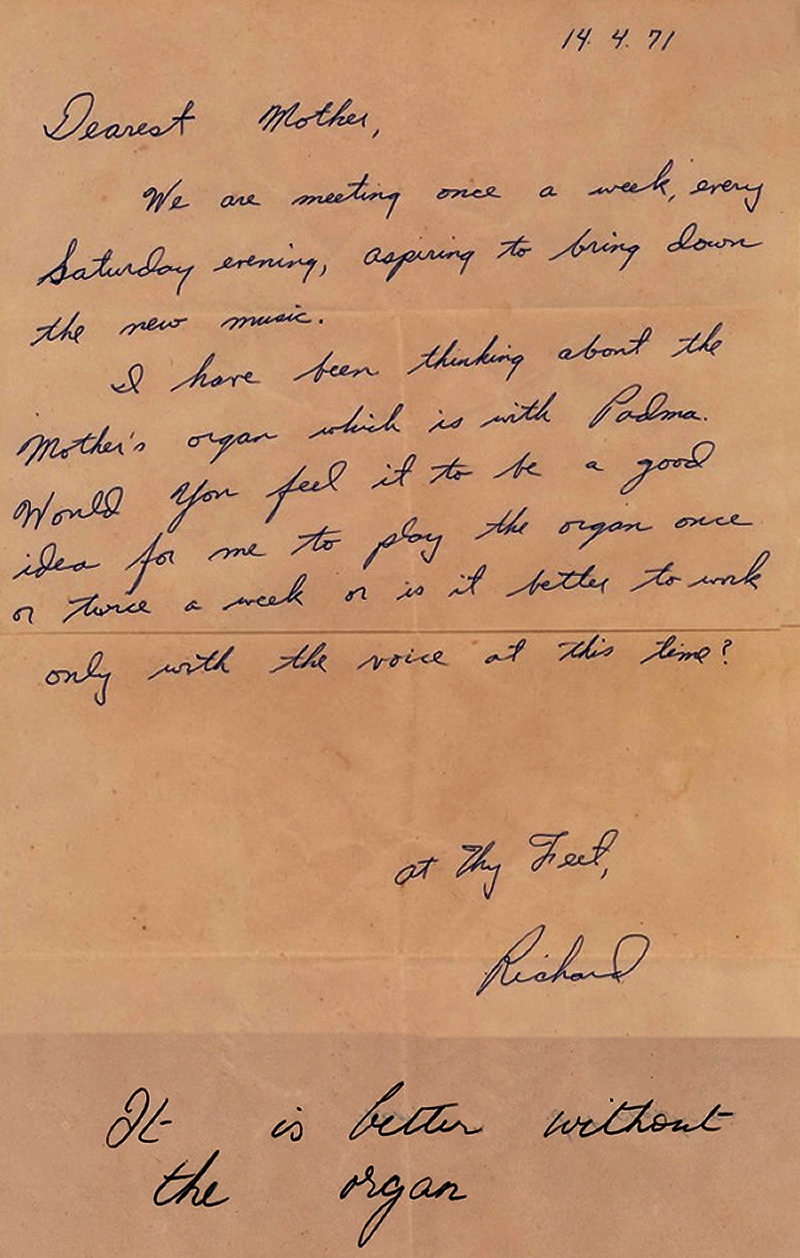 14. 4. 71
Dearest Mother,
We are meeting once a week, every
Saturday evening, aspiring to bring down
the new music.
I have been thinking about the
Mother's organ which is with Padma.
Would You feel it to be a good
idea for me to play the organ once
or twice a week or is it better to work
only with the voice at this time?
at Thy Feet,
Richard
It is better without
the organ